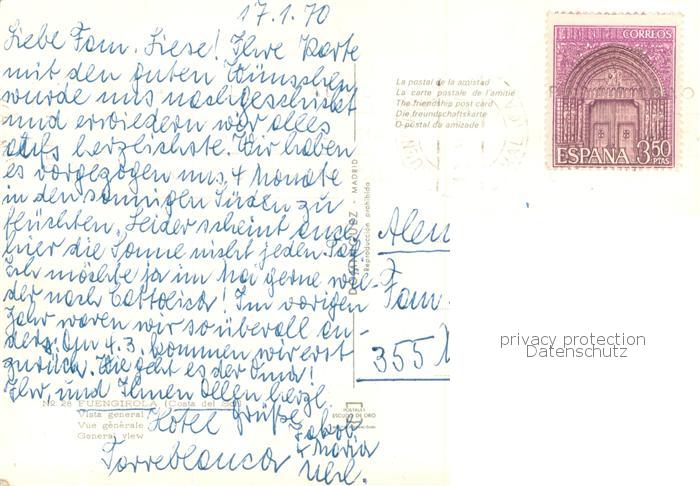 17.1.70
Liebe Fam. Liese! Ihre Karte
mit den guten Wünschen
wurde uns nachgeschickt
und erwiedern wir alles
aufs herzlichste. Wir haben
es vorgezogen uns 4 Monate
in den sonnigen Süden zu
flüchten. Leider scheint auch
hier die Sonne nicht jeden Tag
Ich möchte ja im Mai gerne wie-
der nach Cattolica! Im vorigen
Jahr waren wir so überall an-
ders. Am 4.3. kommen wir erst
zurück. Wie geht es der Oma!
Ihr, und Ihnen Allen herzl.
Grüße
Jakob
+ Maria
Uhl.
Hotel
Torreblanca
No. 28 FUENGIROLA (Costa del Sol)
Vista general
Vue générale
General view
La postal de la amistad
La carte postale de l'amitié
The friendship post card
Die freundschaftskarte
O postal da amizade
DOMINGUEZ - MADRID
Reproducción prohibida
POSTALES
ESCUDO DE ORO
CORREOS
ESPAÑA 3,50
PTAS
Alem
Fam.
355
privacy protection
Datenschutz